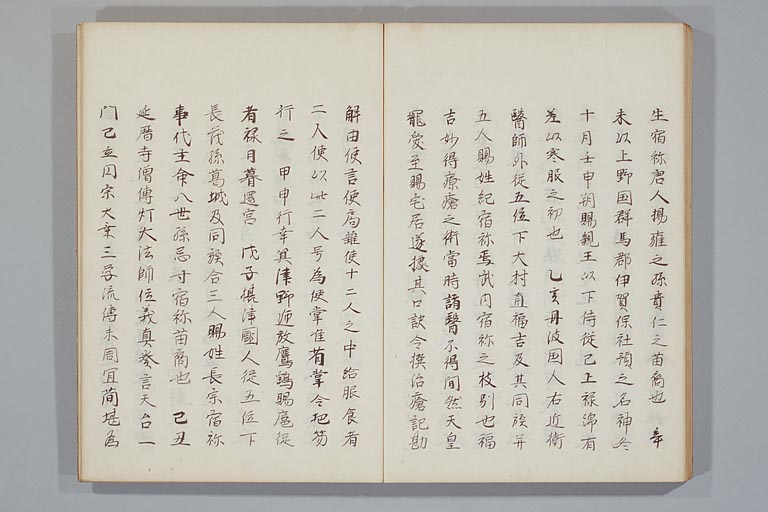 生宿祢唐人揚雍之孫貴仁之苗裔也　辛
未以上野国群馬郡伊賀保社預之名神冬
十月壬申朔賜親王以下侍従已上禄綿有
差以寒服之初也　乙亥丹波国人右近衛
醫師外従五位下大村直福吉及其同族并
五人賜姓紀宿祢焉武内宿祢之枝別也福
吉妙得療瘡之術當時諸醫不得間然天皇
寵愛至賜宅居遂據其口訣令撰治瘡記勘
解由使言使局雑使十二人之中給服食者
二人便以此二人号為使掌准省掌令把笏
行之　甲申行幸箕津野遊放鷹鷂賜扈従
者禄日暮還宮　戊子摂津國人従五位下
長茂孫葛城及同族合三人賜姓長宗宿祢
事代主命八世孫忌寸宿祢苗裔也　己丑
延暦寺僧傳灯大法師位義真發言天台一
門已立円宗大業三学流傳未周冝簡堪為